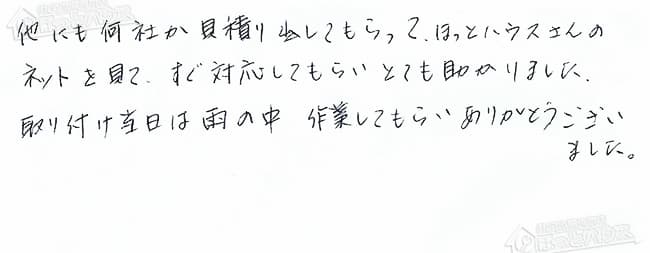 他にも何社か見積り出してもらって、ほっとハウスさんの
ネットを見て、すぐ対応してもらいとても助かりました、
取り付け当日は雨の中 作業してもらいありがとうござい
ました。
ほっとハウス